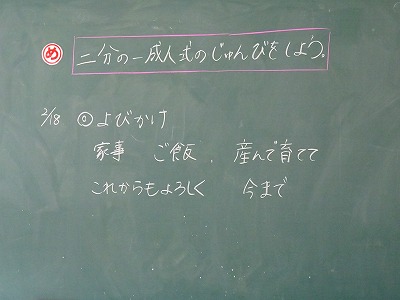 め 二分の一成人式のじゅんびをしよう。
2/18 ◎よびかけ
家事 ご飯、産んで育てて
これからもよろしく 今まで